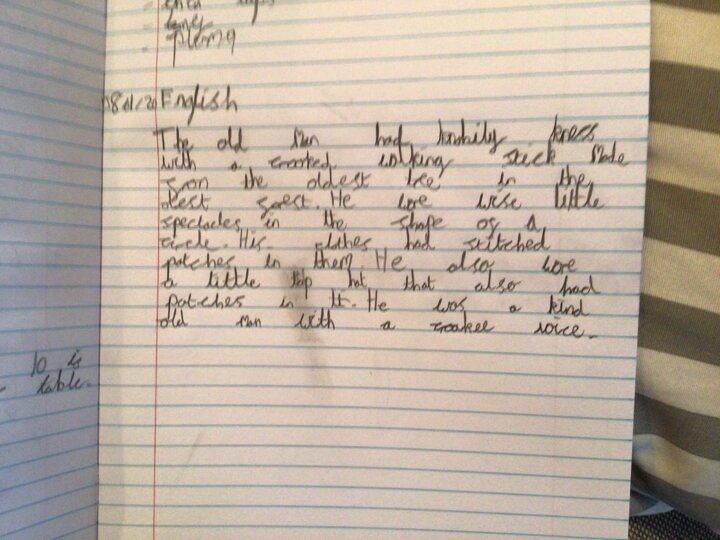 plemg
18/01/20 English
The old Man had knobily knees
with a crooked walking stick Made
from the oldest tree in the
dest forest. He wore wise little
spectacles in the shape of a
circle. His clothes had stitched
patches in them. He also wore
a little top hat that also had
patches in it. He was a kind
old Man with a croakee voice.
10 is
table.